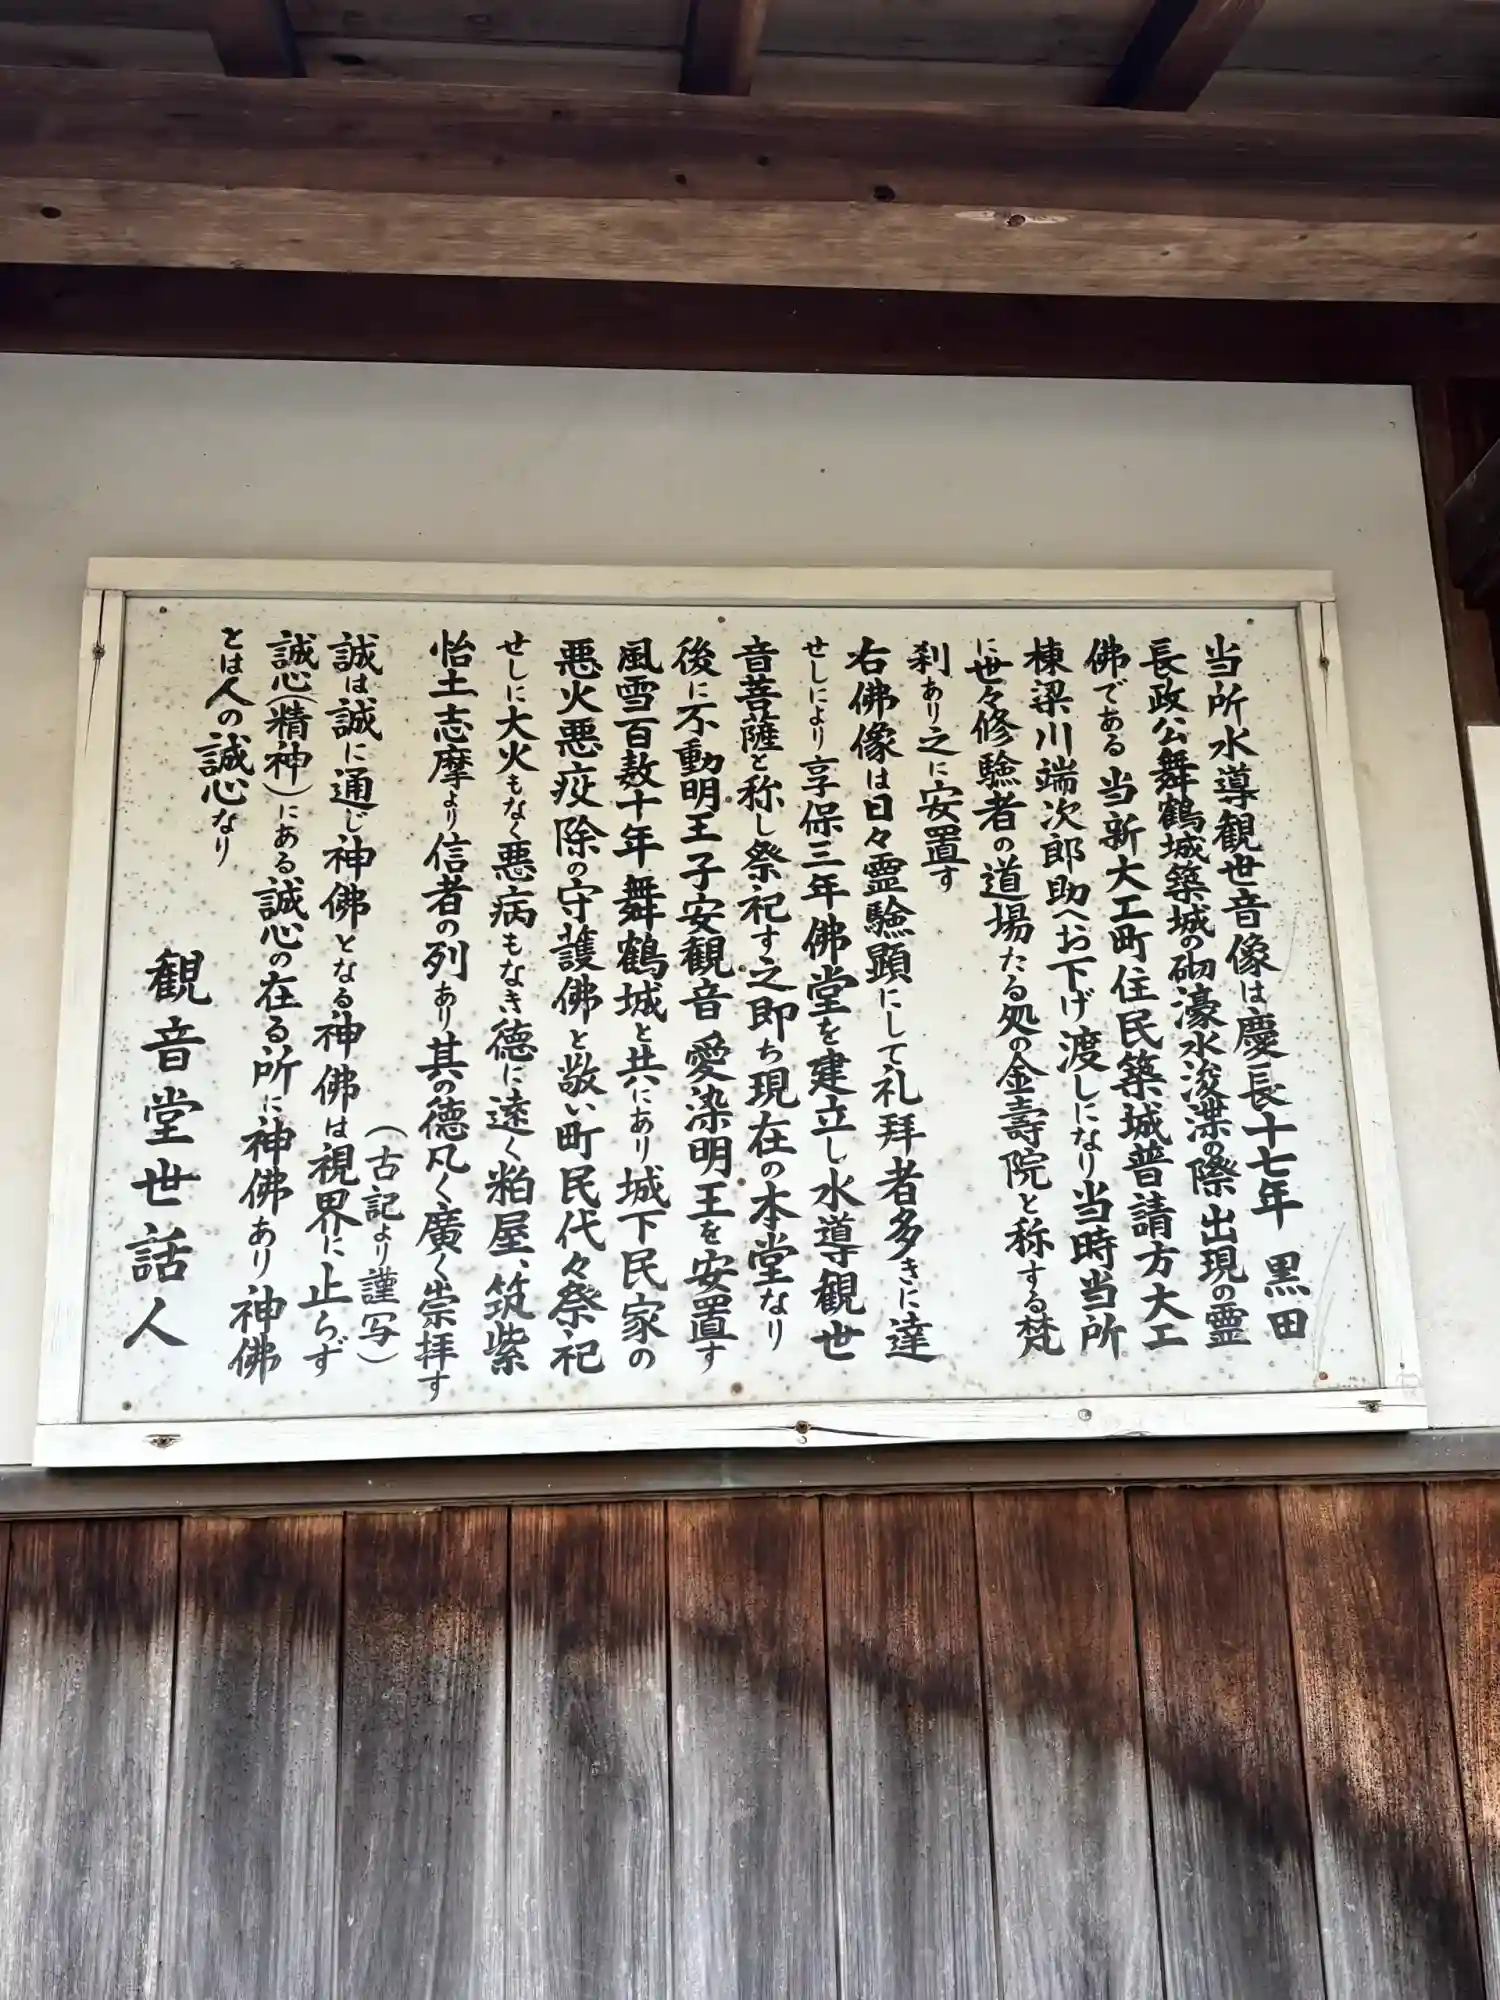 当所水導観世音像は慶長十七年 黒田
長政公舞鶴城築城の砌濠水浚渫の際出現の霊
佛である 当新大工町住民築城普請方大工
棟梁川端次郎助へお下げ渡しになり当時当所
に世々修験者の道場たる処の金壽院と称する梵
刹あり之に安置す
右佛像は日々霊験顕にして礼拜者多きに達
せしにより享保三年佛堂を建立し水導観世
音菩薩と称し祭祀す之即ち現在の本堂なり
後に不動明王子安観音 愛染明王を安置す
風雪百数十年 舞鶴城と共にあり城下民家の
悪火悪疫除の守護佛と敬い町民代々祭祀
せしに大火もなく悪病もなき徳に遠く粕屋、筑紫
怡土志摩より信者の列あり其の徳凡く廣く崇拝す
（古記より謹写）
誠は誠に通じ神佛となる神佛は視界に止らず
誠心（精神）にある誠心の在る所に神佛あり 神佛
とは人の誠心なり
観音堂世話人